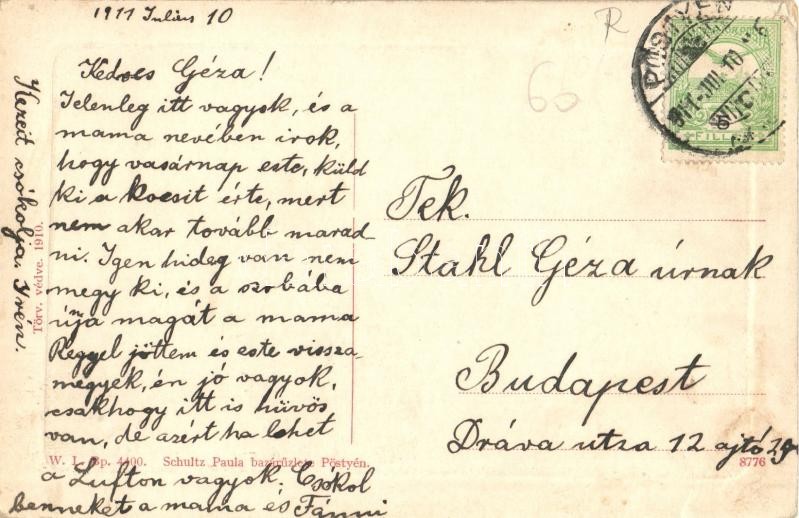 1911 Julius 10
Kedves Géza!
Jelenleg itt vagyok, és a
mama nevében irok,
hogy vasárnap este, küld
ki a kocsit érte, mert
nem akar tovább marad
ni. Igen hideg van nem
megy ki, és a szobába
únja magát a mama
Reggel jöttem és este vissza
megyek, én jó vagyok,
csakhogy itt is hűvös
van, de azért ha lehet
a Lufton vagyok. Csókol
benneket a mama és Fánni
Kezeit csókolja. Irén.
Törv. védve. 1910.
W. L. Bp. 4400. Schultz Paula bazárüzlete Pöstyén.
8776
R
60
PÖSTYÉN
911
10
FILLÉR
Tek.
Stahl Géza úrnak
Budapest
Dráva utza 12 ajtó 29